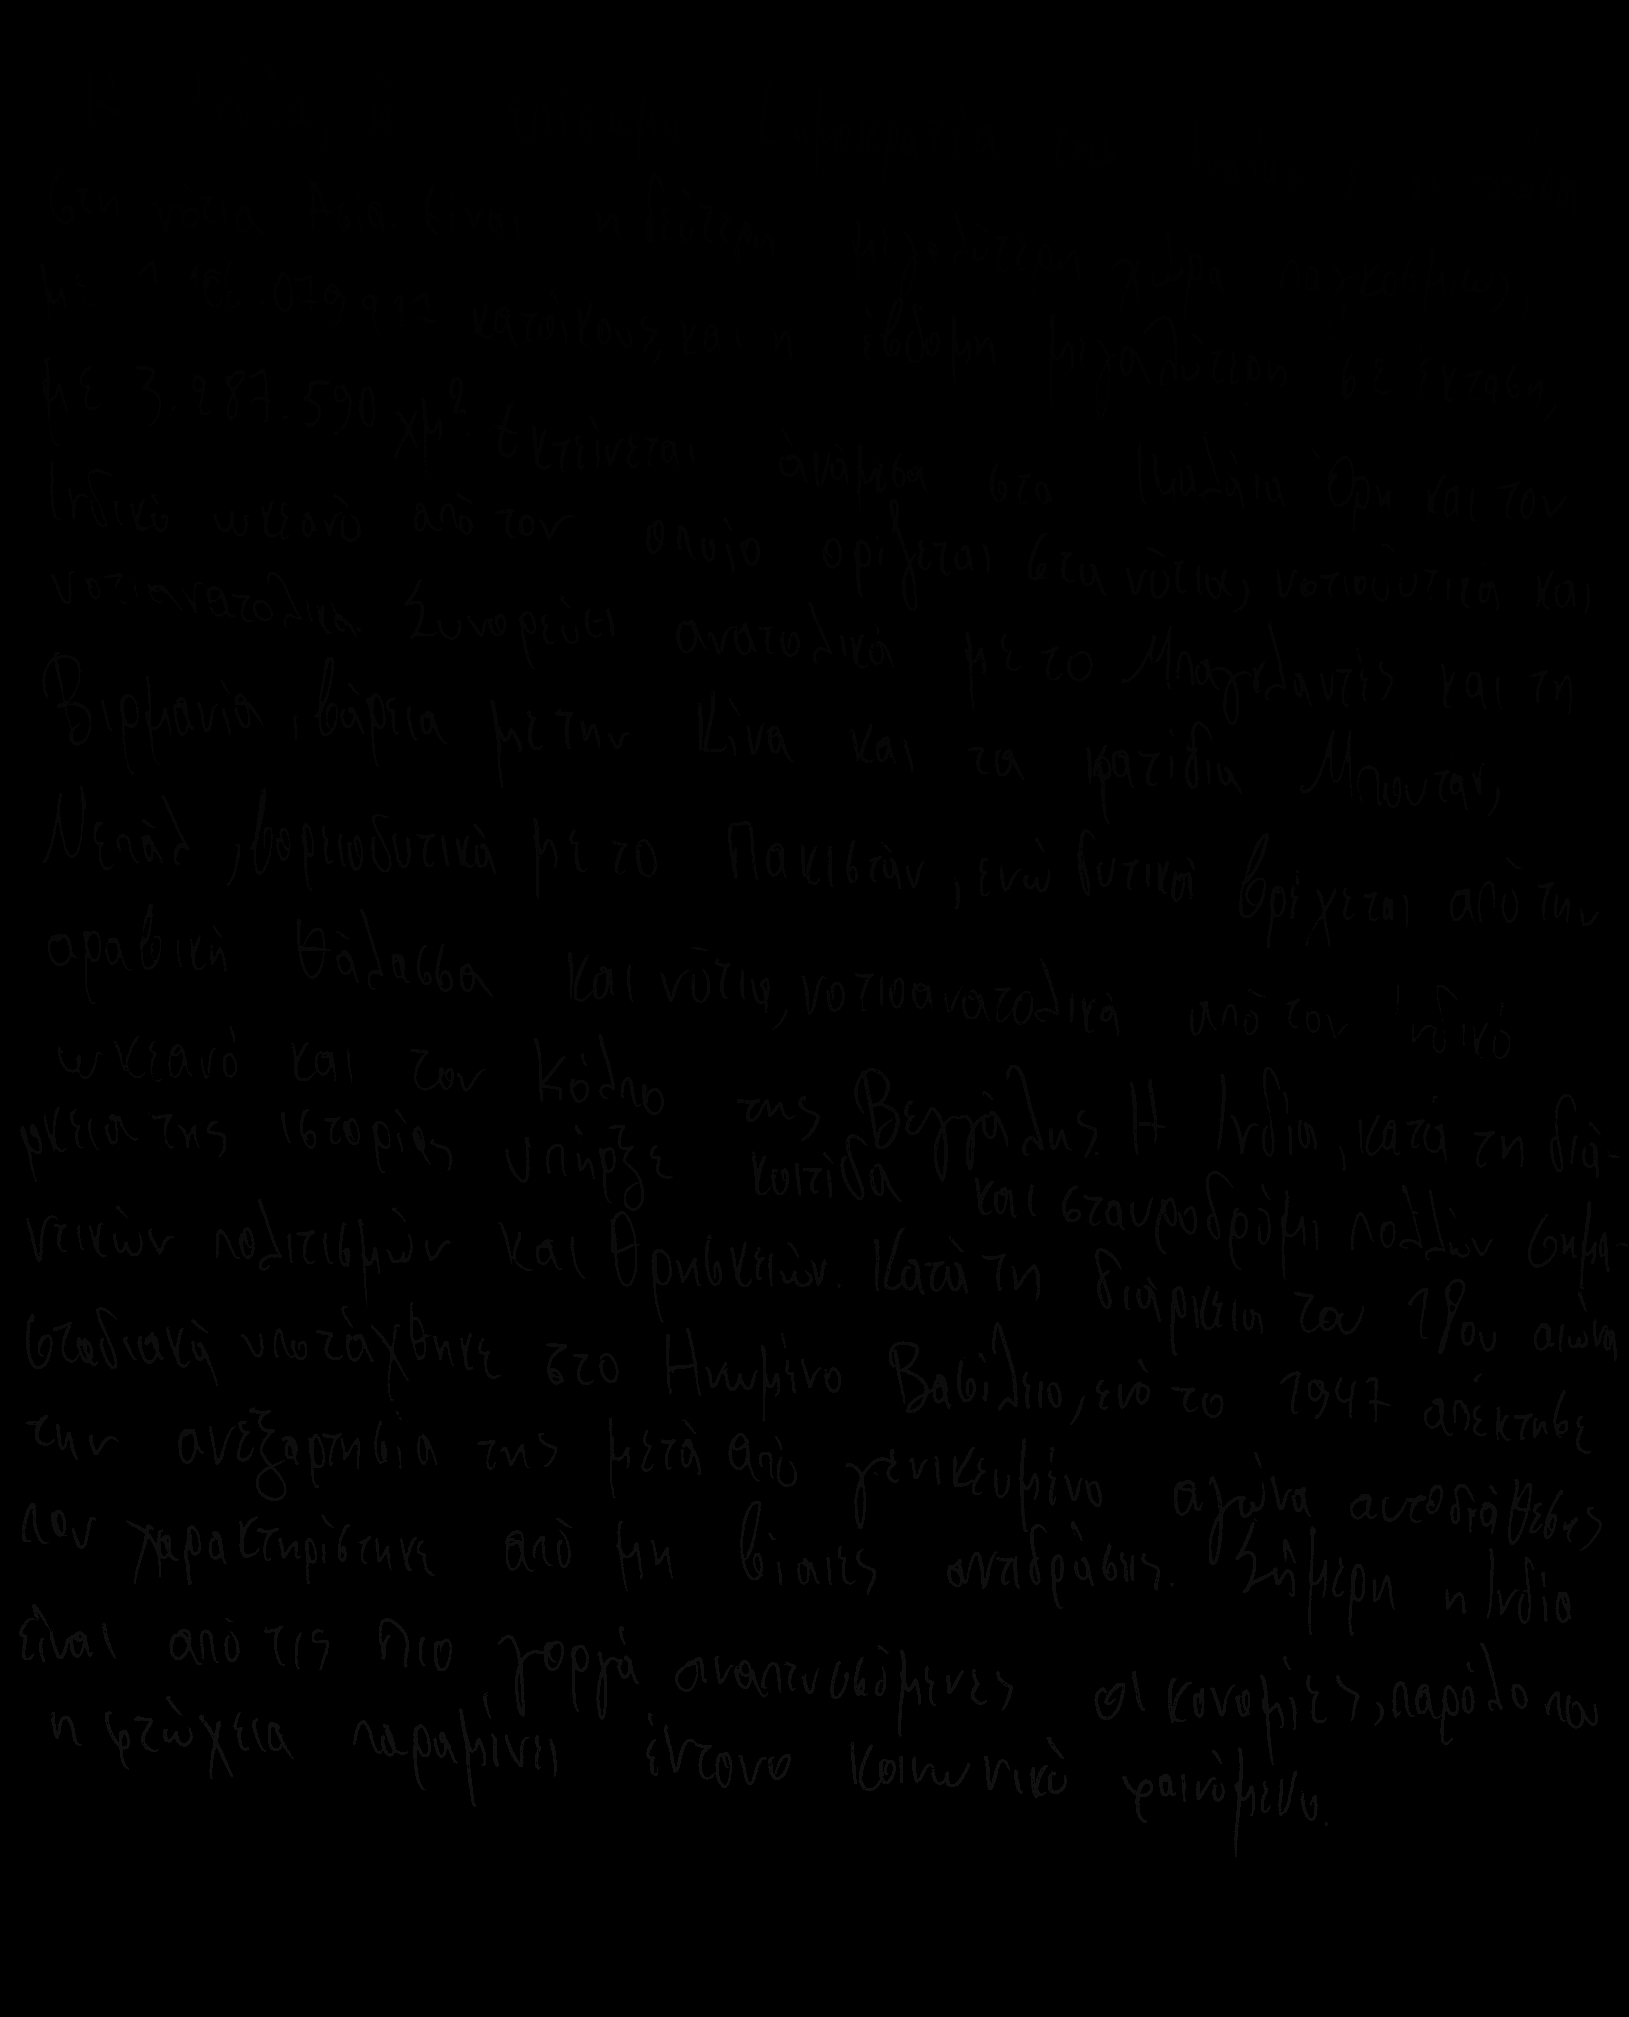 στη νότιο Ασία. Είναι η δεύτερη μεγαλύτερη χώρα παγκοσμίως,
με κατοίκους, και η έβδομη μεγαλύτερη σε έκταση,
με 3.287.590 χμ². Εκτείνεται ανάμεσα στα Ιμαλάια Όρη και τον
Ινδικό ωκεανό από τον οποίο ορίζεται στα νότια, νοτιοδυτικα και
νοτιανατολικα Συνορεύει ανατολικά με το Μπαγκλαντές και τη
Βιρμανία, βόρεια με την Κίνα και τα κρατίδια Μπουταν,
Νεπάλ, βορειοδυτικά με το Πακιστάν, ενώ δυτικά βρέχεται από την
αραβική θάλασσα και νότια, νοτιοανατολικά από τον ινδικό
ωκεανό και τον Κόλπο της Βεγγάλης. Η Ινδία, κατά τη διά-
ρκεια της ιστορίας υπήρξε κοιτίδα και σταυροδρόμι πολλών σημα-
ντικών πολιτισμών και θρησκειών. Κατά τη διάρκεια του 18ου αιώνα
σταδιακά υποτάχθηκε στο Ηνωμένο Βασίλειο, ενό το 1947 απέκτησε
την ανεξαρτησία της μετά από γενικευμένο αγώνα αυτοδιάθεσης
που χαρακτηρίστηκε από μη βίαιες αντιδράσεις. Σήμερη η Ινδία
είναι από τις πιο γοργά αναπτυσσόμενες οικονομίες, παρόλο που
η φτώχεια παραμένει έντονο κοινωνικό φαινόμενο.